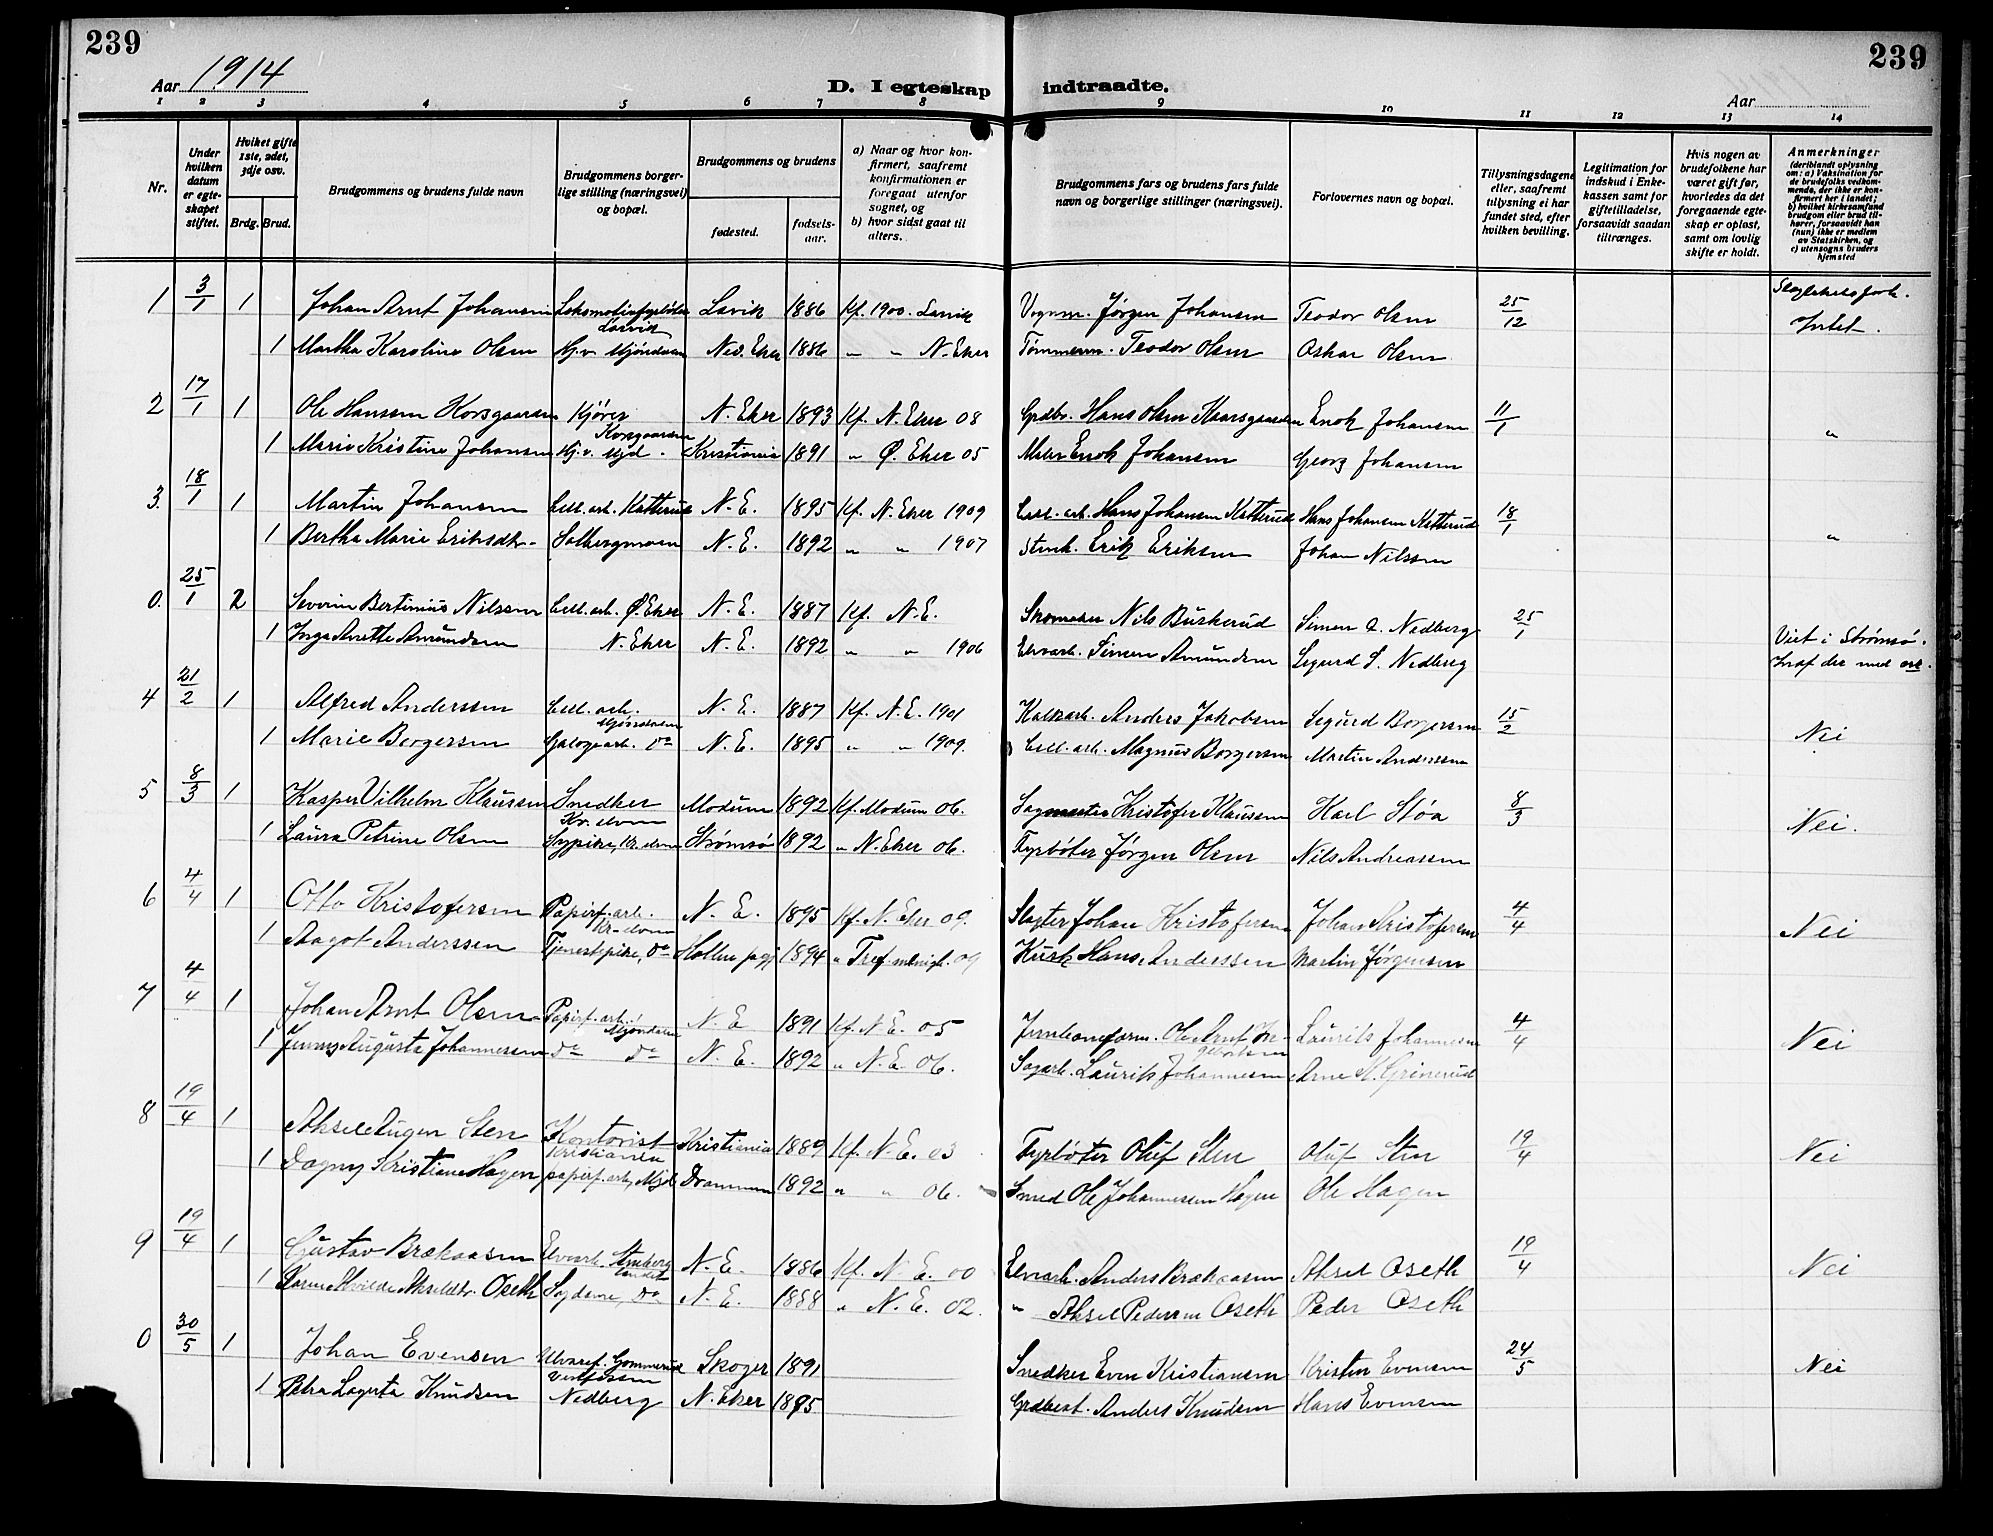 239
239
Aar 1914
D. I egteskap indtraadte.
Aar
1 2 3 4 5 6 7 8 9 10 11 12 13 14
Nr.
Under hvilken datum er egteskapet stiftet.
Hvilket gifte 1ste, 2det, 3dje osv.
Brdg. Brud.
Brudgommens og brudens fulde navn
Brudgommens borgerlige stilling (næringsvei) og bopæl.
Brudgommens og brudens
fødested.
fødselsaar.
a) Naar og hvor konfirmert, saafremt konfirmationen er foregaat utenfor sognet, og
b) hvor sidst gaat til alters.
Brudgommens fars og brudens fars fulde navn og borgerlige stillinger (næringsvei).
Forlovernes navn og bopæl.
Tillysningsdagene eller, saafremt tillysning ei har fundet sted, efter hvilken bevilling.
Legitimation for indskud i Enkekassen samt for giftetilladelse, forsaavidt saadan tiltrænges.
Hvis nogen av brudefolkene har været gift før, hvorledes da det foregaaende egteskap er opløst, samt om lovlig skifte er holdt.
Anmerkninger
(deriblandt oplysning om: a) Vaksination for de brudefolks vedkommende, der ikke er konfirmert her i landet; b) hvilket kirkesamfund brudgom eller brud tilhører, forsaavidt han (hun) ikke er medlem av Statskirken, og c) utensogns bruders hjemsted
1 3/1 1 Johan Arnt Johansen Larvik Larvik 1886 Kf. 1900. Larvik Vognm. Jørgen Johansen Teodor Olsen 25/12 Slegtskabsforh. Intet.
1 Martha Karoline Olsen Hj.v. Mjøndalen Ned. Eker 1886 " " N. Eker Tømmerm. Teodor Olsen Oskar Olsen
2 17/1 1 Ole Hansen Korsgaarden Kjører Korsgaarden N. Eker 1893 Kf. N. Eker 08 Grdbr. Hans Olsen Kaarsgaarden Enok Johansen 11/1 "
1 Marie Kristine Johansen Hj.v. Mjd. Kristiania 1891 " Ø. Eker 05 Maler Enok Johansen Georg Johansen
3. 18/1 1 Martin Johansen Cell. arb. Katterud N. E. 1895 Kf. N. Eker 1909 Cell. arb. Hans Johansen Ketterud Hans Johansen Ketterud 18/1 "
1 Bertha Marie Eriksdtr. Solbergmoen N. E. 1892 " " 1907 Stenh. Erik Eriksen Johan Nilssen
0. 25/1 2 Severin Bertinius Nilssen Cell. arb. Ø. Eker N. E. 1887 Kf. N. E. Skomaker Nils Buskerud Simen A. Nedberg 25/1 Viet i Strømsø.
1 Inga Anette Amundsen N. Eker N. E. 1892 " " 1906 Elvarb. Simen Amundsen Sigurd S. Nedberg
4 21/2 1 Alfred Anderssen Cell. arb. Mjøndalen N. E. 1887 Kf. N. E. 1901 Kalkarb. Anders Jakobsen Sigurd Borgersen 15/2 Nei
1 Marie Borgersen do N. E. 1895 " " 1909. Cell. arb. Magnus Borgersen Martin Anderssen
5 8/3 1 Kasper Vilhelm Klaussen Snedker Kr. elven Modum 1892 Kf. Modum 06. Sagmester Kristofer Klaussen Karl Støa 8/3 Nei.
1 Laura Petrine Olsen Sypike, Kr. elven Strømsø 1892 " N. Eker 06. Fyrbøter Jørgen Olsen Nils Andreassen
6 4/4 1 Otto Kristofersen Papirf. arb. Kr. elven N. E. 1895 Kf. N. Eker 09. Slagter Johan Kristofersen Johan Kristofersen 4/4 Nei
1 Aagot Anderssen Tjenestpike, do 1894 " Tref. menigh. 09 Kusk Hans Anderssen Martin Jørgensen
7 4/4 1 Johan Arnt Olsen Papirf. arb. Mjøndalen N. E 1891 Kf. N. E. 05 Ole Arnt Laurits Johannesen 4/4 Nei
1 Jenny Augusta Johannesen do do N. E. 1892 " N. E. 06. Sagarb. Laurits Johannesen Arne M. Grinerud
8 19/4 1 Aksel Eugen Sten Kontorist Kristiania Kristiania 1889 Kf. N. E. 03 Fyrbøter Oluf Sten Oluf Sten 19/4 Nei
1 Dagny Kristiane Hagen papirf. arb, Mjd. Drammen 1892 " " 06. Smed Ole Johannesen Hagen Ole Hagen
9 19/4 1 Gustav Brækaasen Elvearb. N. E. 1886 Kf. N. E. 00 Elvarb. Anders Brækaasen Aksel Oseth 19/4 Nei
1 Oseth do N. E. 1888 " N. E. 02. " Aksel Pedersen Oseth Peder Oseth
0 30/5 1 Johan Evensen Gommerud Vestfossen Skoger 1891 Snedker Even Kristiansen Kristen Evensen 24/5 Nei
1 Petra Lagerta Knudsen Nedberg N. Eker 1895 Grdbest. Anders Knudsen Hans Evensen